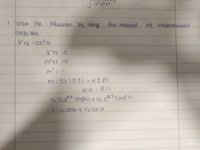 -x²y²+y
1 Solve the equation by using the method of undetermined
coefficient
y''+y = 2x sin x
y''+y = 0
m²+1 = 0
m² = -1
m = ±i = 0 ± i = α ± βi
α = 0, β = 1
y = c₁ e^{αx} cos(βx) + c₂ e^{αx} sin(βx)
y = c₁ cos x + c₂ sin x